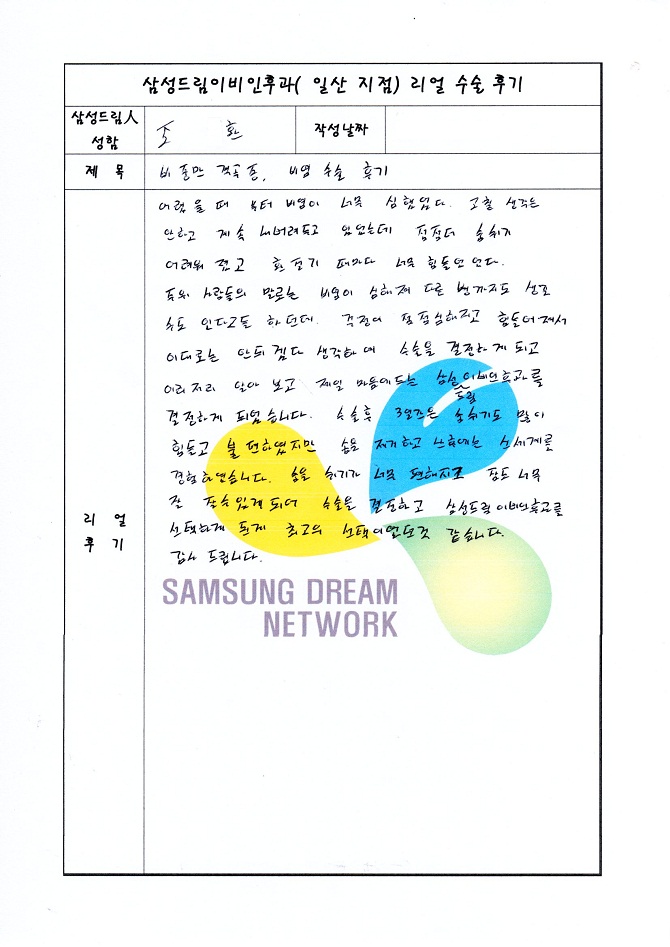 삼성드림이비인후과( 일산 지점) 리얼 수술 후기
삼성드림人
성함
조 환
작성날짜
제 목
비중만 격곡증, 비염 수술 후기
어렸을때 부터 비염이 너무 심했었다. 고칠 생각은
안하고 계속 내버려두고 있었는데 점점더 숨쉬기
어려워 졌고 환절기 때마다 너무 힘들었었다.
주위 사람들의 말로는 비염이 심해져 다른 병까지도
있다고들 하던데. 걱정이 점점심해지고 힘들어져서
이대로는 안되겠다 생각하에 수술을 결정하게 되고
이리저리 알아 보고 제일 마음에드는 삼성드림이비인후과를
결정하게 되었습니다. 수술후 3일쯔은 숨쉬기도 많이
힘들고 불편하였지만 솜을 제거하고 난후에는 신세계를
경험하였습니다. 숨을 쉬기가 너무 편해지고 잠도 너무
잘 잘수있게되어 수술을 결정하고 삼성드림이비인후과를
선택하게 된게 최고의 선택이었던것 같습니다.
감사 드립니다.
리 얼
후 기
SAMSUNG DREAM
NETWORK